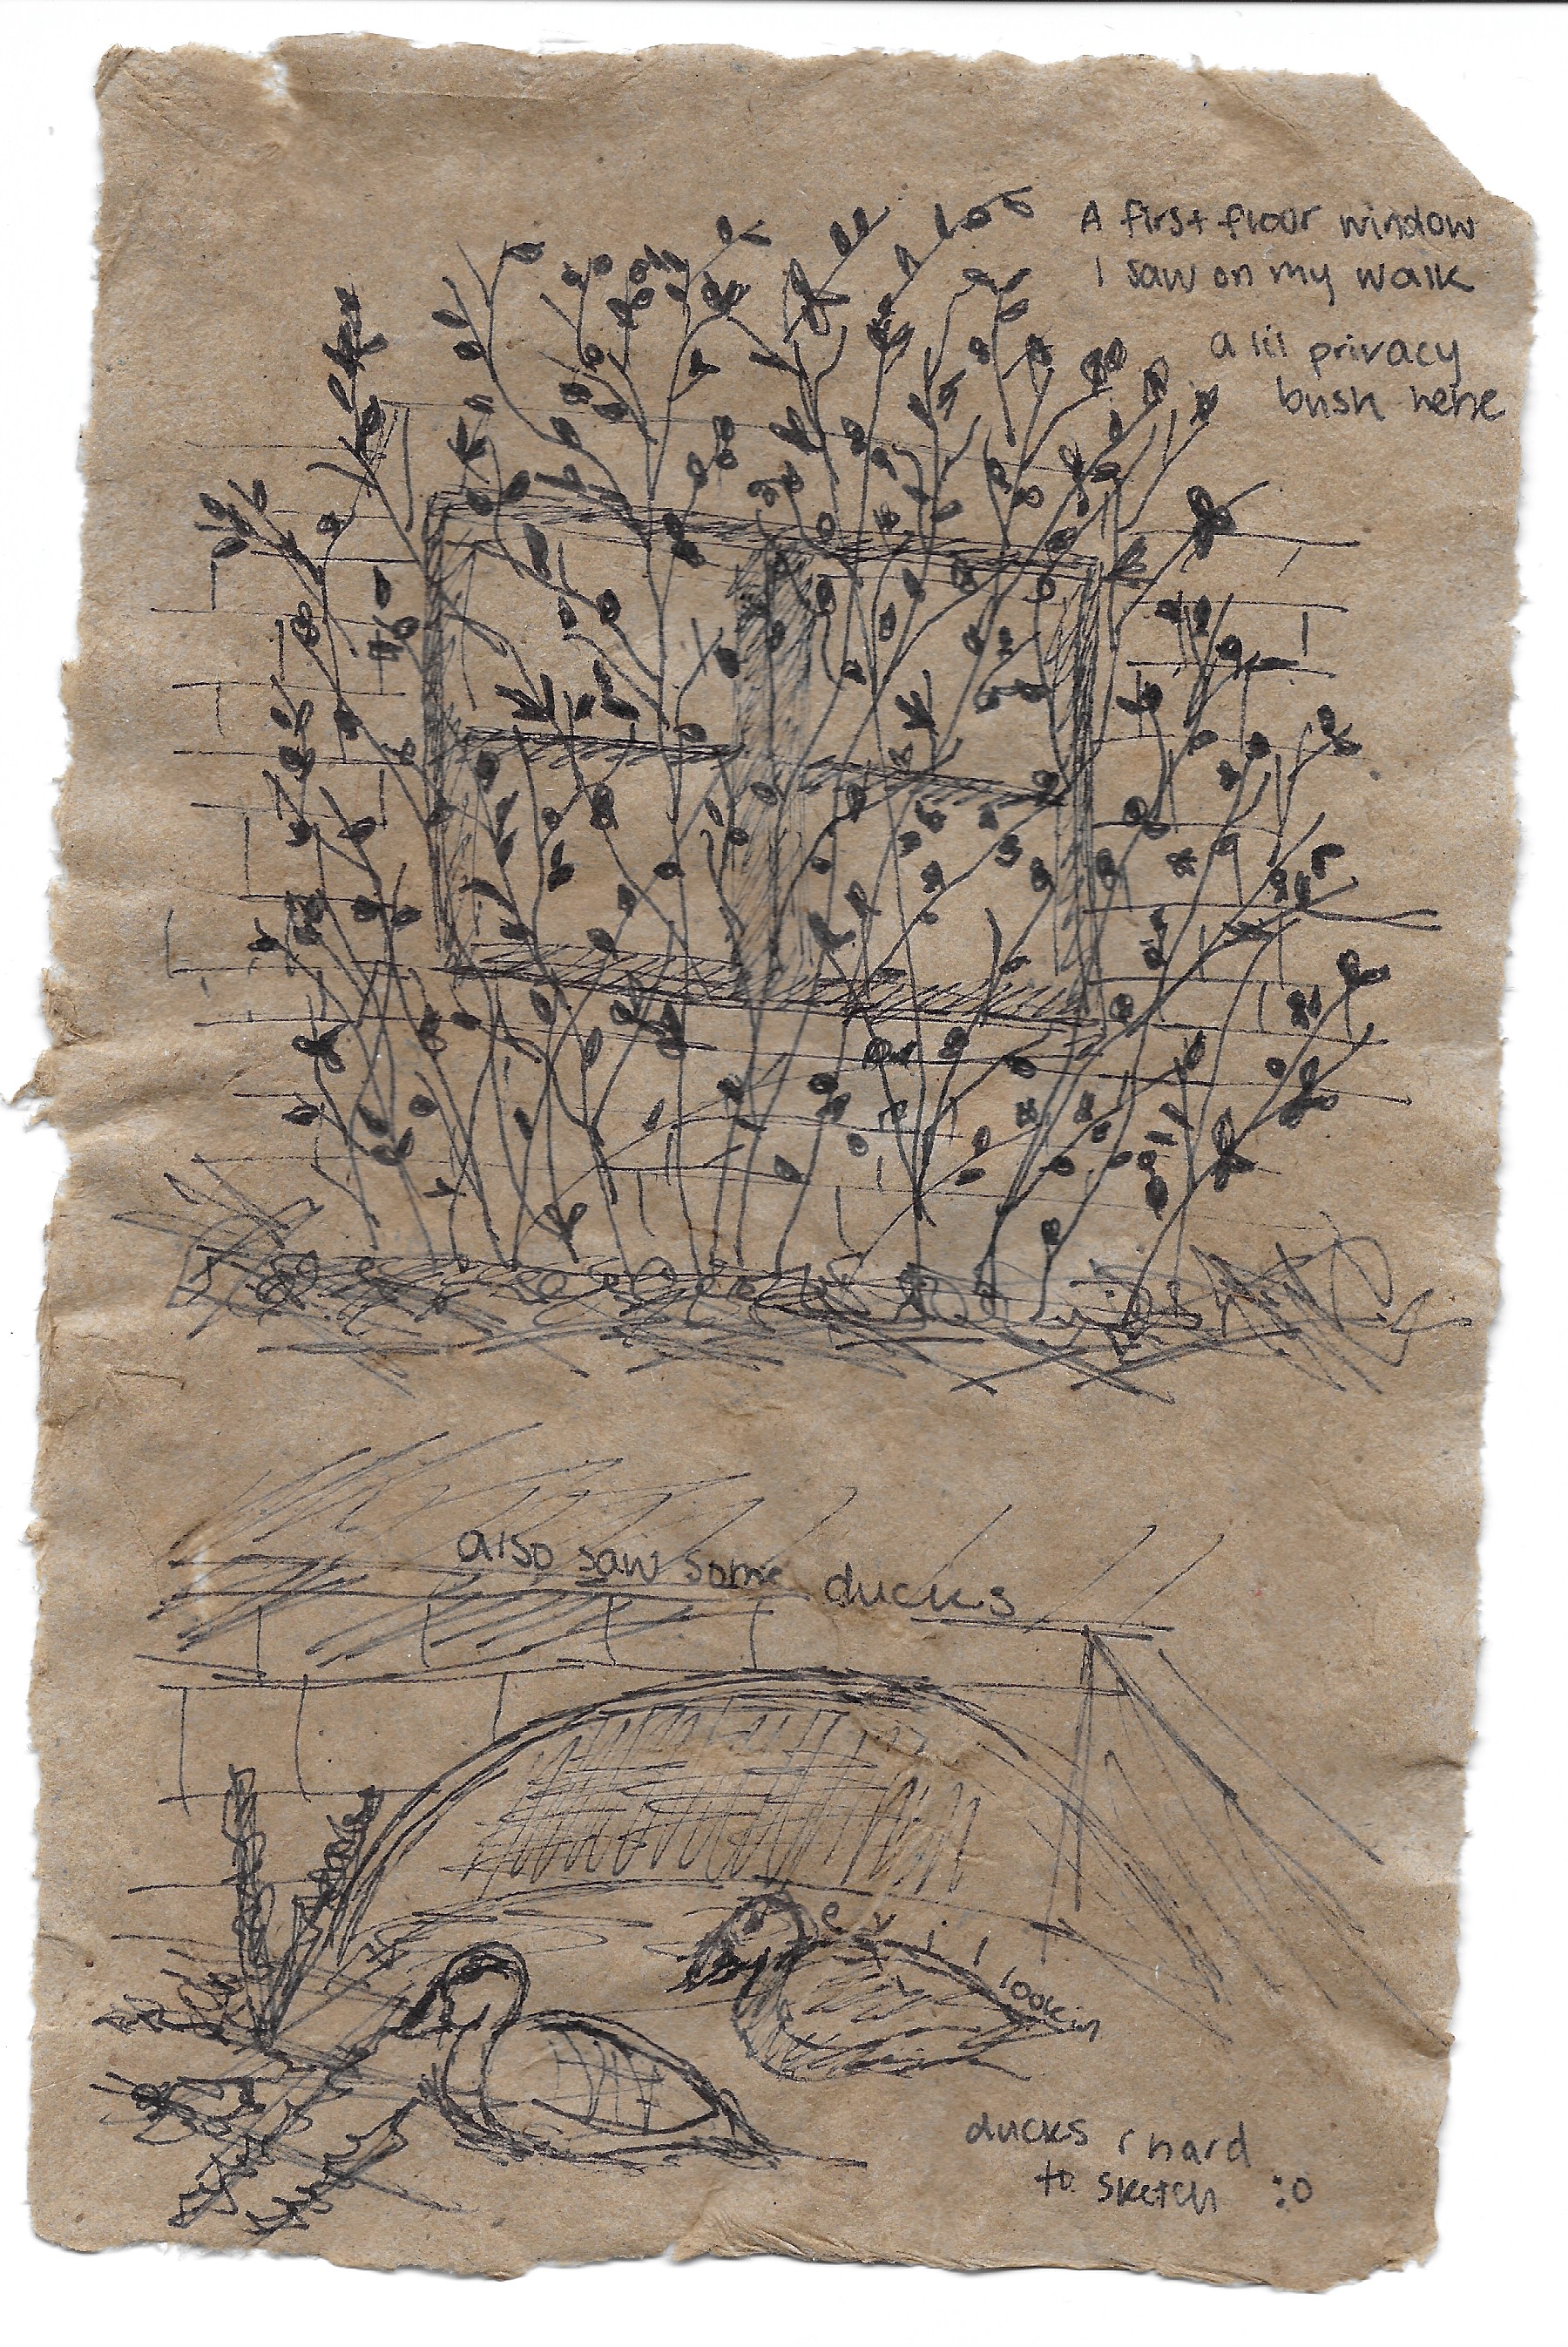 A first floor window
I saw on my walk
a lil privacy
bush here
also saw some ducks
evil lookin
ducks r hard
to sketch :o